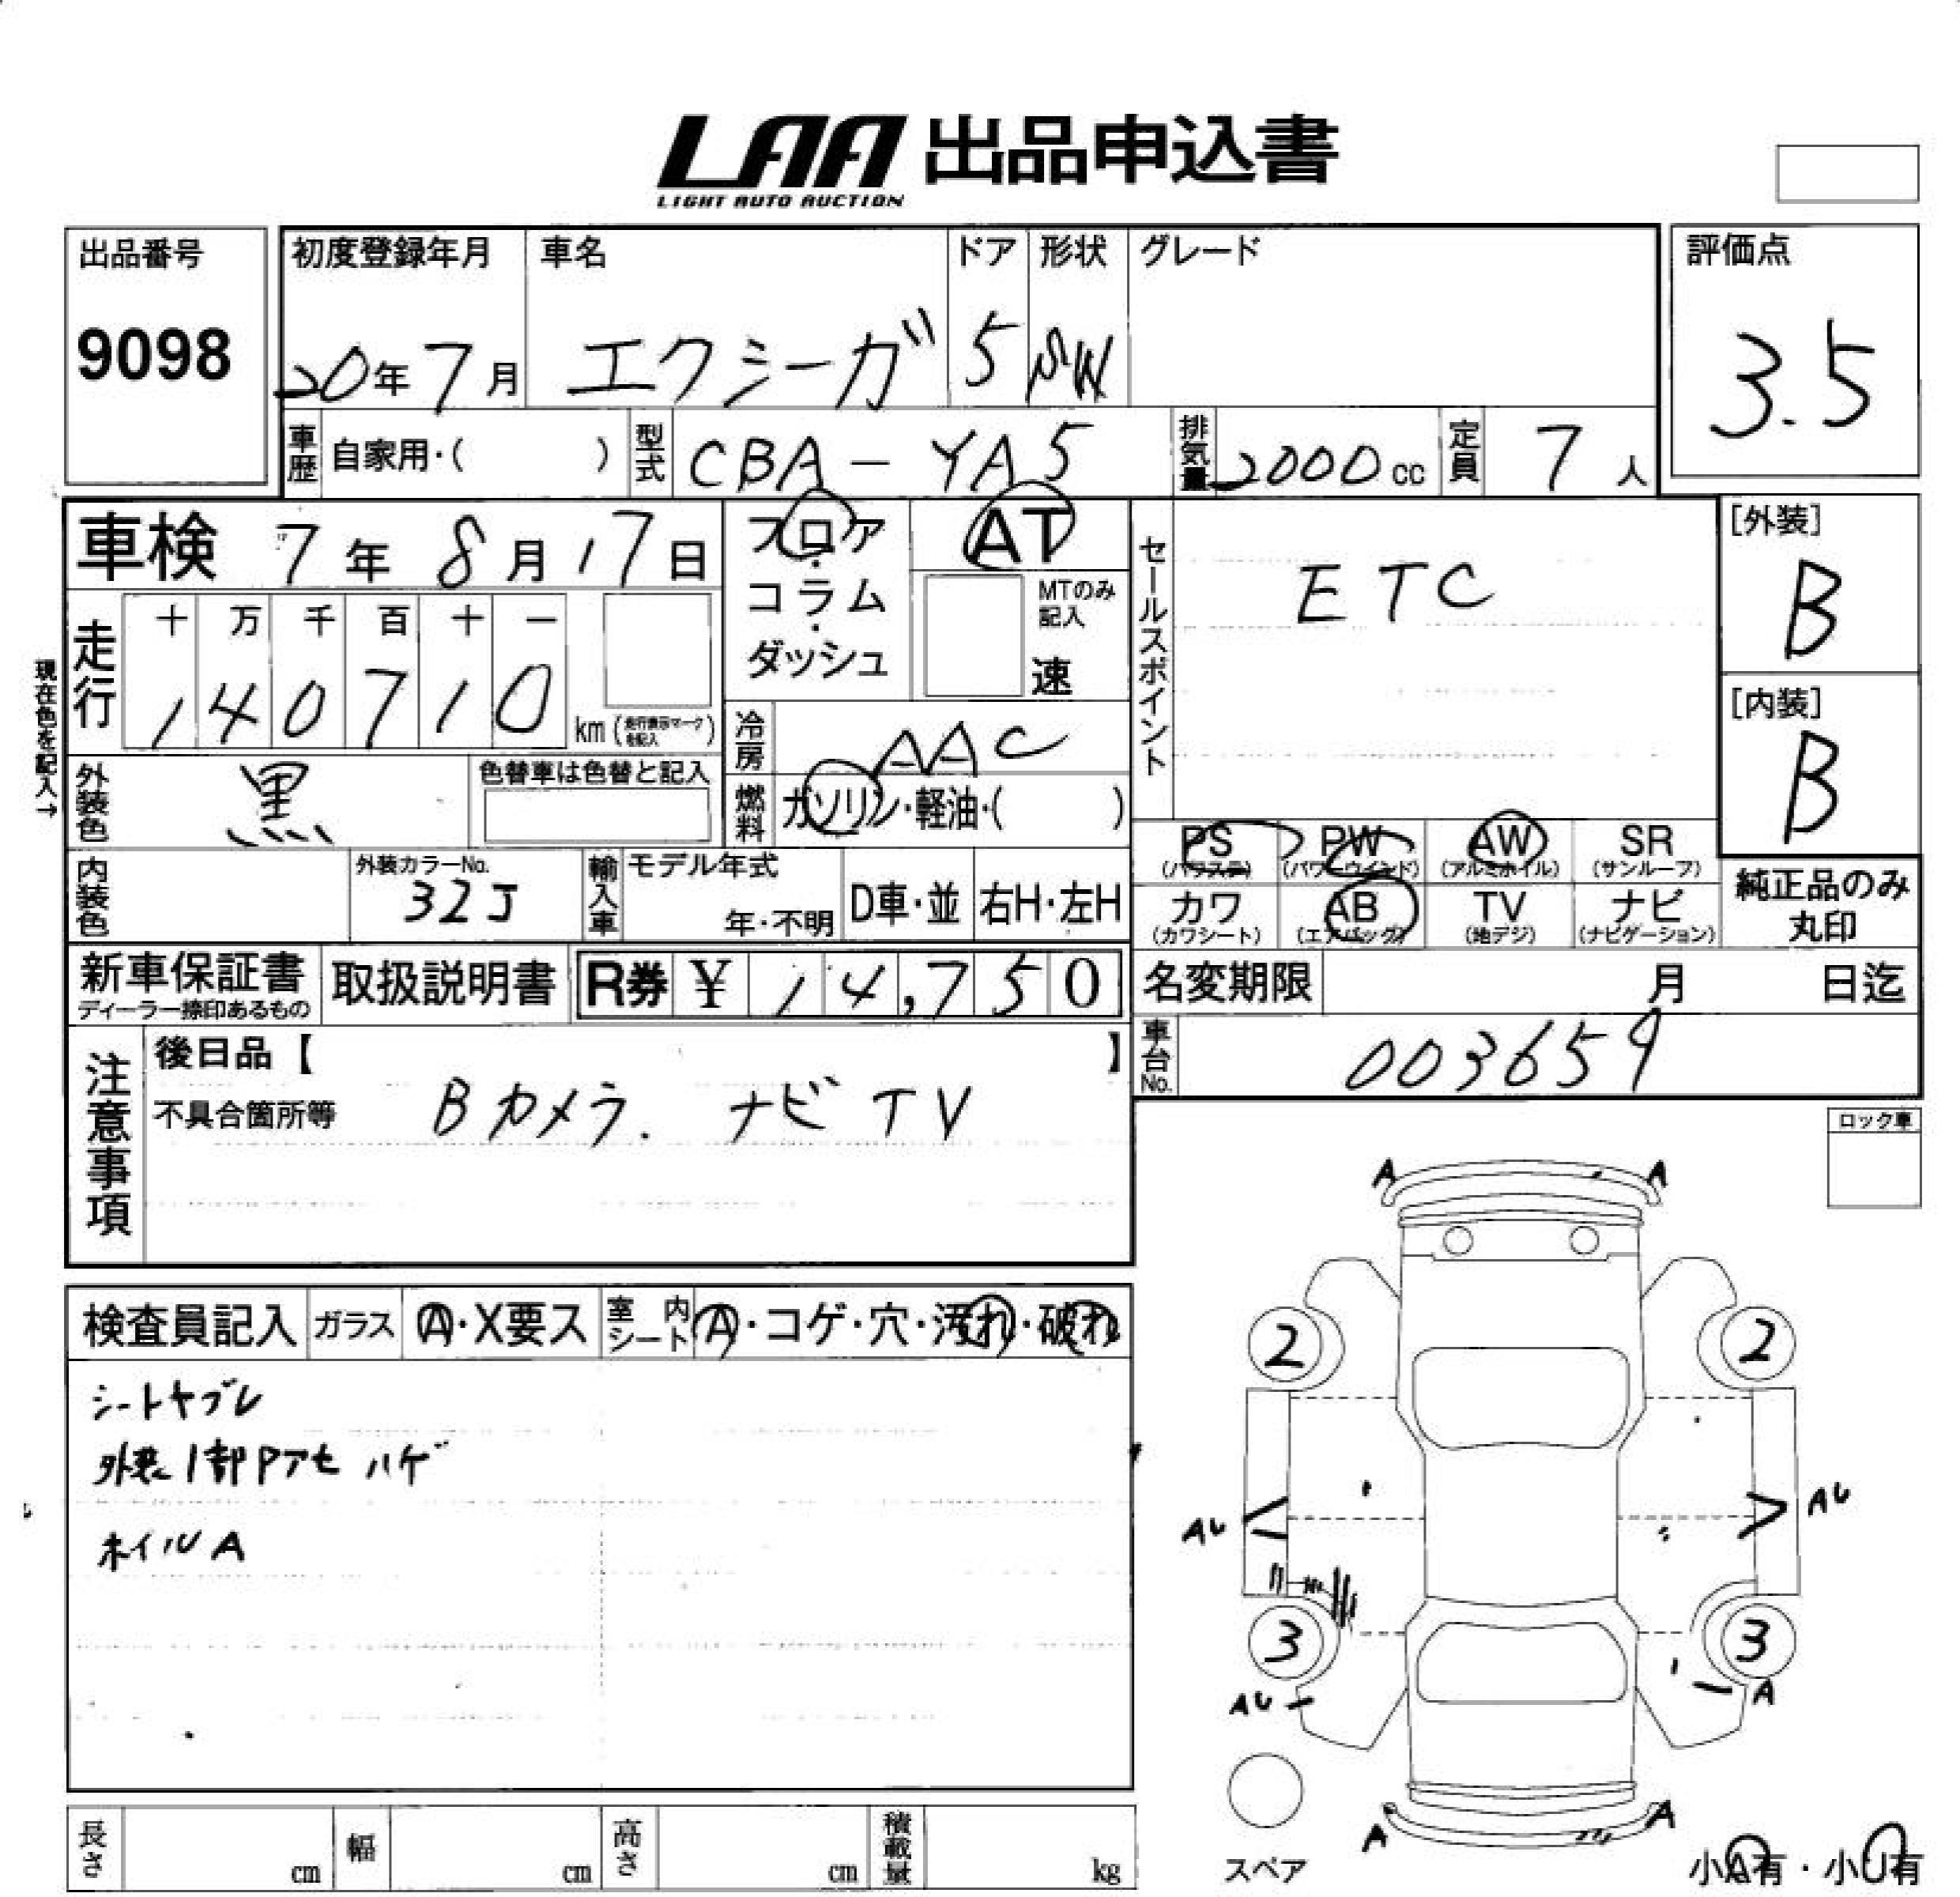 LAA 出品申込書
LIGHT AUTO AUCTION
出品番号
9098
初度登録年月
20年7月
車名
エクシーガ
ドア
5
形状
SW
グレード
評価点
3.5
車歴 自家用・( )
型式 CBA-YA5
排気量 2000cc
定員 7人
車検 7年8月17日
フロア・コラム・ダッシュ
AT
MTのみ記入
速
セールスポイント
ETC
[外装]
B
[内装]
B
現在色を記入→
走行
十 万 千 百 十 一
1 4 0 7 1 0 km (走行表示マークを記入)
冷房 AAC
外装色 黒
色替車は色替と記入
燃料 ガソリン・軽油・( )
PS (パワステ)
PW (パワーウインド)
AW (アルミホイル)
SR (サンルーフ)
カワ (カワシート)
AB (エアバッグ)
TV (地デジ)
ナビ (ナビゲーション)
純正品のみ丸印
内装色
外装カラーNo.
32J
輸入車
モデル年式
年・不明
D車・並
右H・左H
新車保証書
ディーラー捺印あるもの
取扱説明書
R券 ¥ 14,750
名変期限 月 日迄
車台No. 003659
注意事項
後日品【 】
不具合箇所等 Bカメラ. ナビ TV
ロック車
検査員記入
ガラス A・X要ス
室内シート A・コゲ・穴・汚れ・破れ
シートヤブレ
外装1部Pアセ ハゲ
ホイルA
A A
2 2
AU AU
3 3
AU A
A A
スペア
小A有・小U有
長さ cm
幅 cm
高さ cm
積載量 kg